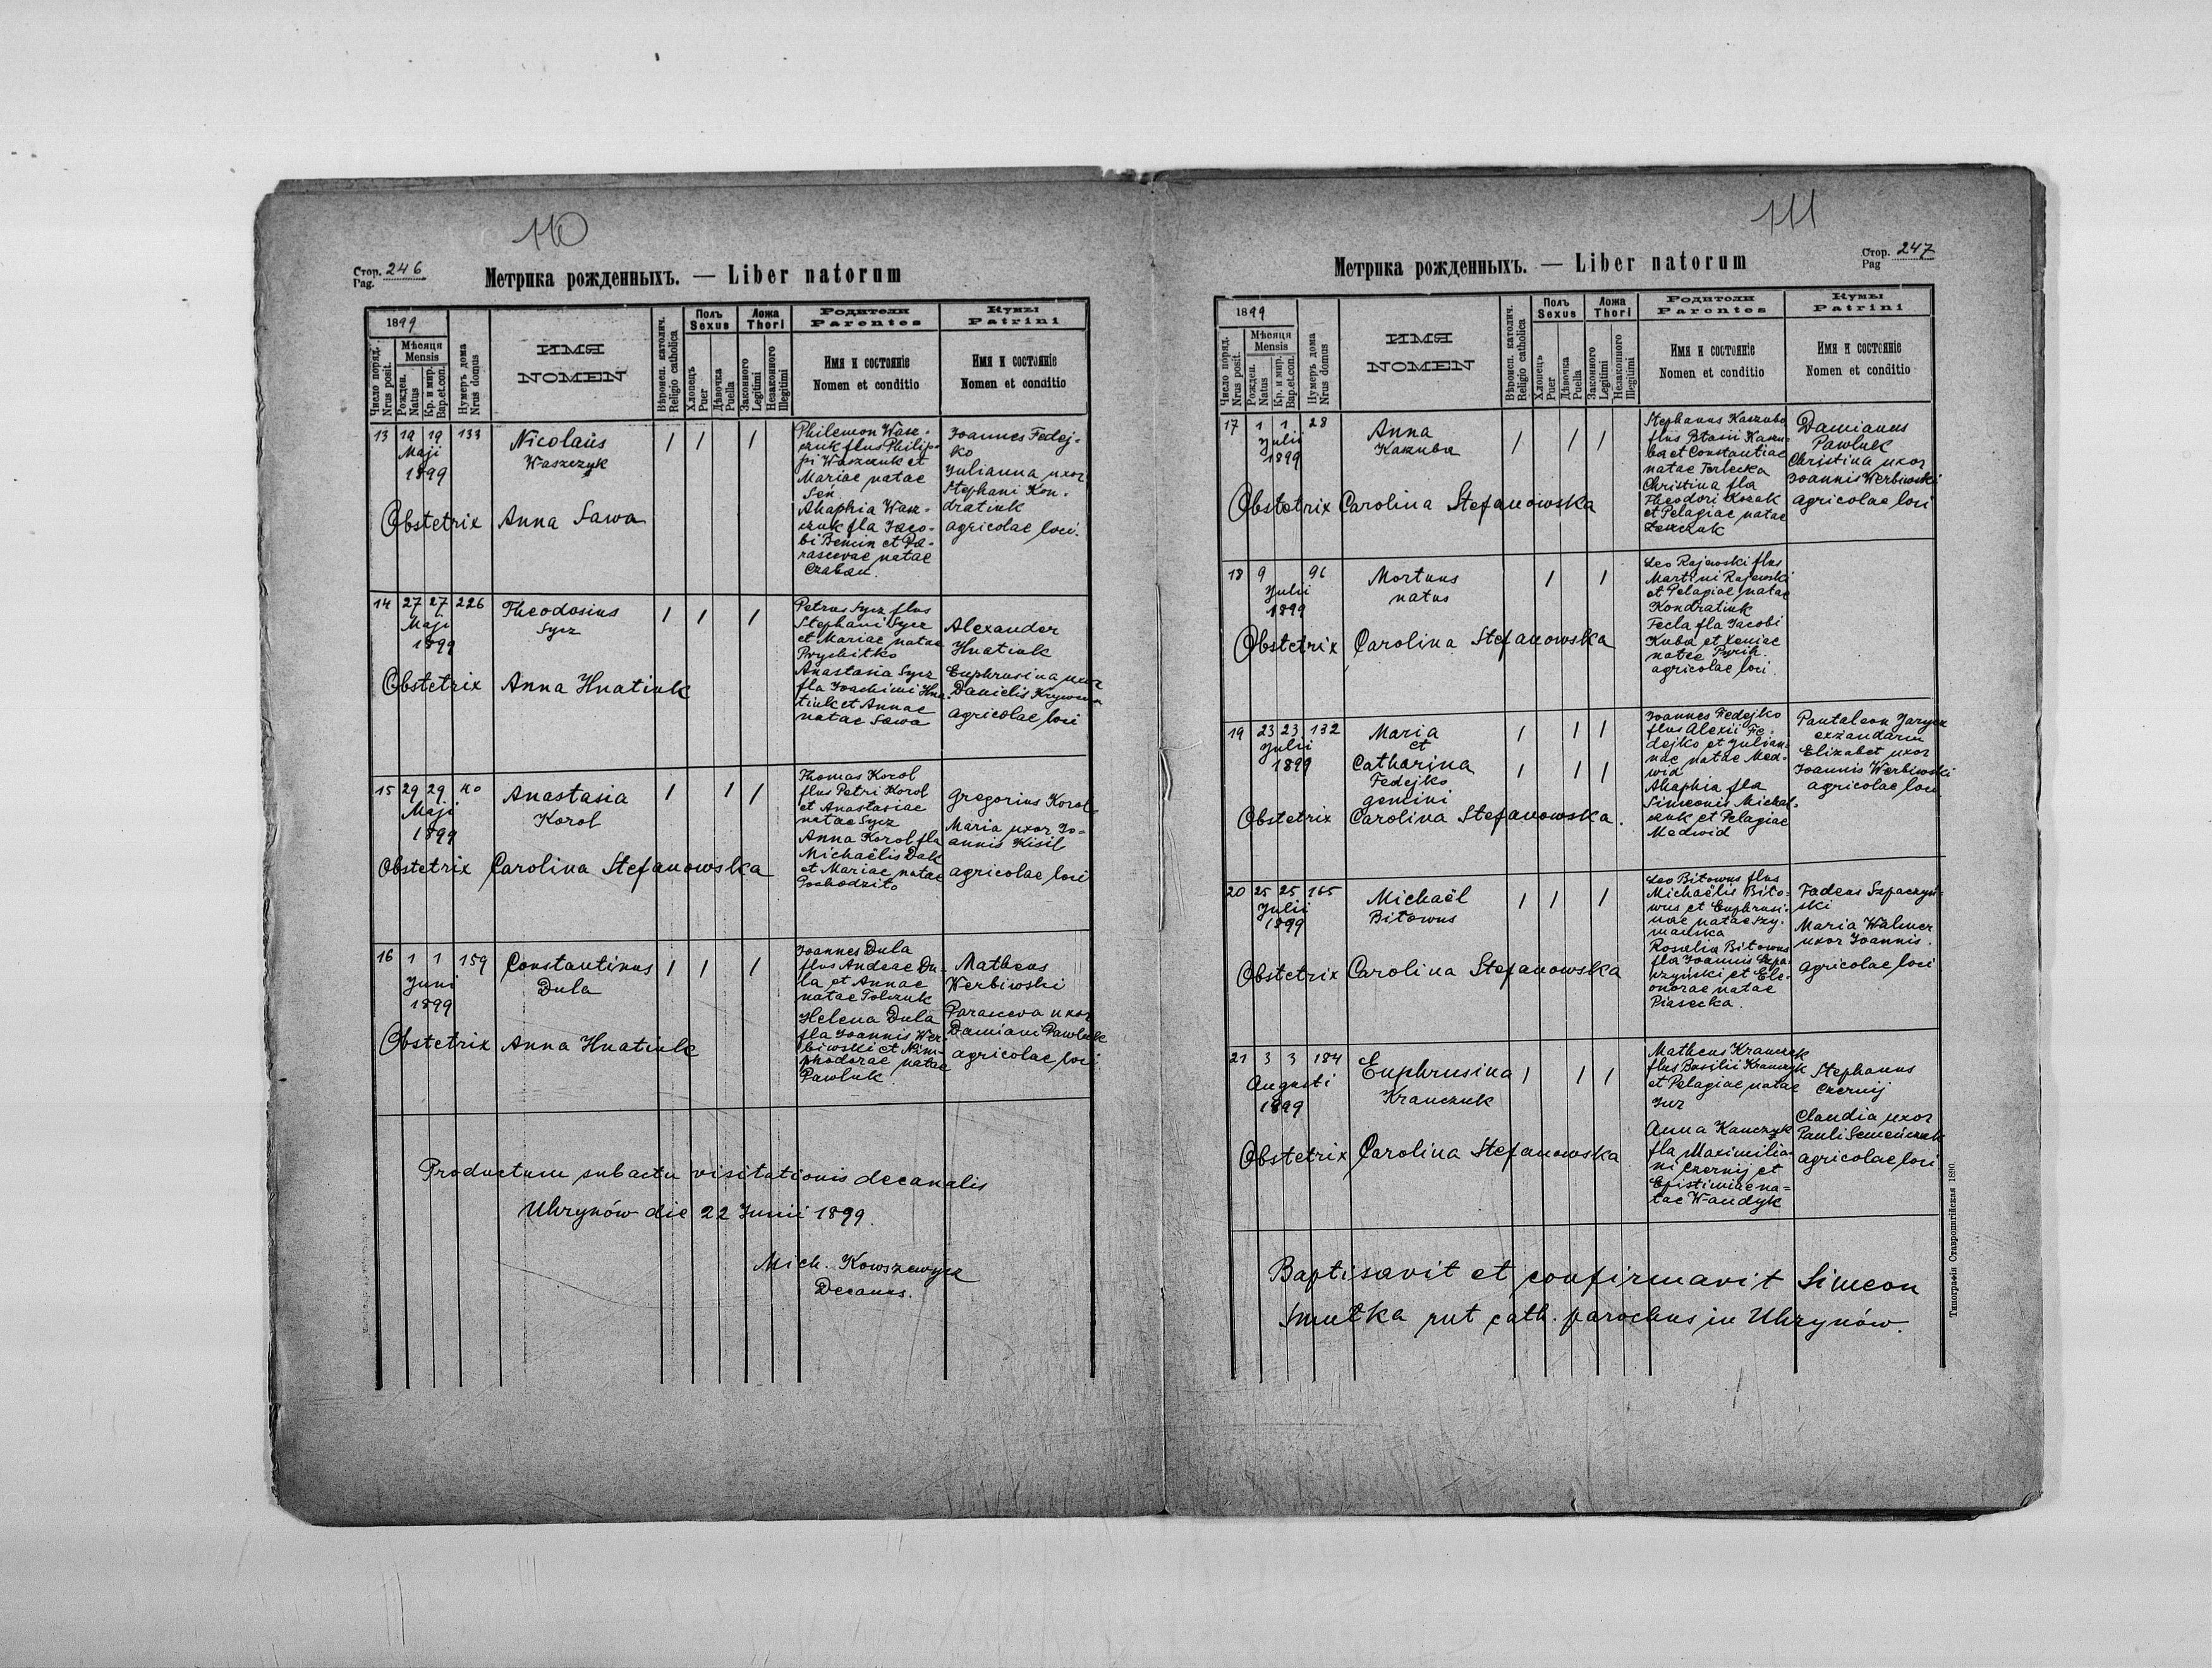 110
Стор. 246
Pag.
Метрика рожденныхъ. — Liber natorum
1899
Число поряд.
Nrus posit.
Мѣсяця
Mensis
Рожден.
Natus
Кр. и мир.
Bap.et.con.
Нумеръ дома
Nrus domus
ИМЯ
NOMEN
Вѣроисп. католич.
Religio catholica
Полъ
Sexus
Хлопецъ
Puer
Дѣвочка
Puella
Ложа
Thori
Законного
Legitimi
Незаконного
Illegitimi
Родители
Parentes
Имя и состояніе
Nomen et conditio
Кумы
Patrini
Имя и состояніе
Nomen et conditio
13 19 19 133
Maji
1899
Nicolaus
Waszczyk
Obstetrix Anna Sawa
Philemon Wasz-
czuk flus Philip-
pi Waszczuk et
Mariae natae
Seń.
Ahaphia Wasz-
czuk fla Jaco-
bi Bemin et Pa-
rascevae natae
Czaban.
Joannes Fedej-
ko
Julianna uxor
Stephani Kon-
dratiuk
agricolae loci.
14 27 27 226
Maji
1899
Theodosius
Sycz
Obstetrix Anna Hnatiuk
Petrus Sycz flus
Stephani Sycz
et Mariae natae
Prychitko
Anastasia Sycz
fla Joachimi Hna-
tiuk et Annae
natae Sawa
Alexander
Hnatiuk
Euphrusina uxor
Danielis
agricolae loci
15 29 29
Maji
1899
Anastasia
Korol
Obstetrix Carolina Stefanowska
Thomas Korol
flus Petri Korol
et Anastasiae
natae Sycz
Anna Korol fla
Michaëlis Dak
et Mariae natae
Pochodzito
Gregorius Korol
Maria uxor Jo-
annis Kisil
agricolae loci
16 1 1 159
Juni
1899
Constantinus
Dula
Obstetrix Anna Hnatiuk
Joannes Dula
flus Andeae Du-
la et Annae
natae Tolczuk
Helena Dula
fla Joannis Wer-
biwski et Nim-
phodorae natae
Pawluk.
Matheus
Werbiwski
Parasceva uxor
Damiani Pawluk
agricolae loci
Productum sub actu visitationis decanalis
Uhrynów die 22 Junii 1899.
Mich. Kowszewycz
Decanus.
111
Стор. 247
Pag
Метрика рожденныхъ. — Liber natorum
1899
Число поряд.
Nrus posit.
Мѣсяця
Mensis
Рожден.
Natus
Кр. и мир.
Bap.et.con.
Нумеръ дома
Nrus domus
ИМЯ
NOMEN
Вѣроисп. католич.
Religio catholica
Полъ
Sexus
Хлопецъ
Puer
Дѣвочка
Puella
Ложа
Thori
Законного
Legitimi
Незаконного
Illegitimi
Родители
Parentes
Имя и состояніе
Nomen et conditio
Кумы
Patrini
Имя и состояніе
Nomen et conditio
17 1 1 28
Julii
1899
Anna
Kaszuba
Obstetrix Carolina Stefanowska
Stephanus Kaszuba
flus Blasii Kaszu-
ba et Constantiae
natae Terlecka
Christina fla
Theodori Kozak
et Pelagiae natae
Damianus
Pawluk
Christina uxor
Joannis Werbiwski
agricolae loci
18 9 96
Julii
1899
Mortuus
natus
Obstetrix Carolina Stefanowska
Leo Rajewski flus
Martini Rajewski
et Pelagiae natae
Kondratiuk
Fecla fla Jacobi
Kuba et Xeniae
natae Pyrih
agricolae loci.
19 23 23 132
Julii
1899
Maria
et
Catharina
Fedejko
gemini
Obstetrix Carolina Stefanowska.
Joannes Fedejko
flus Alexii Fe-
dejko et Julian-
nae natae Med-
wid
Ahaphia fla
Simeonis Michal-
czuk et Pelagiae
Medwid
Pantaleon Jarycz
exzandarm
Elizabet uxor
Joannis Werbiwski
agricolae loci
20 25 25 165
Julii
1899
Michaël
Bitowus
Obstetrix Carolina Stefanowska
Leo Bitowus flus
Michaëlis Bito-
wus et Euphrusi-
nae natae Szy-
mańska
Rosalia Bitowus
fla Joannis Szpa-
czyński et Ele-
onorae natae
Piasecka.
Tadeus Szpaczyń-
ski
Maria Walmer
uxor Joannis.
agricolae loci
21 3 3 184
Augusti
1899
Euphrusina
Krauczuk
Obstetrix Carolina Stefanowska
Matheus Krauczuk
flus Basilii Krauczyk
et Pelagiae natae
Jur
Anna Kauczyk
fla Maximilia-
ni Czernij et
Epistimiae na-
tae Wandyk
Stephanus
Czernij
Claudia uxor
Pauli Semeńczuk
agricolae loci
Baptisavit et confirmavit Simeon
Smutka rut cath. parochus in Uhrynów.
Типографія Ставропигійская 1890.